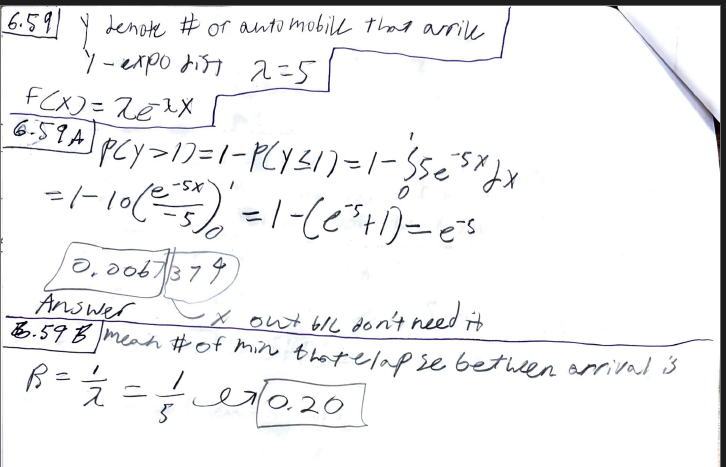 6.59 Y denote # of automobile that arrive
Y-expo dist λ=5
F(x)=λe^-λx
6.59A P(Y>1)=1-P(Y≤1)=1-∫₀¹5e^-5x dx
=1-10(e^-5x/-5)₀¹=1-(e^-5+1)=e^-5
0.0067379
Answer x out b/c don't need it
6.59B mean # of min that elapse between arrival is
β=1/λ=1/5 → 0.20